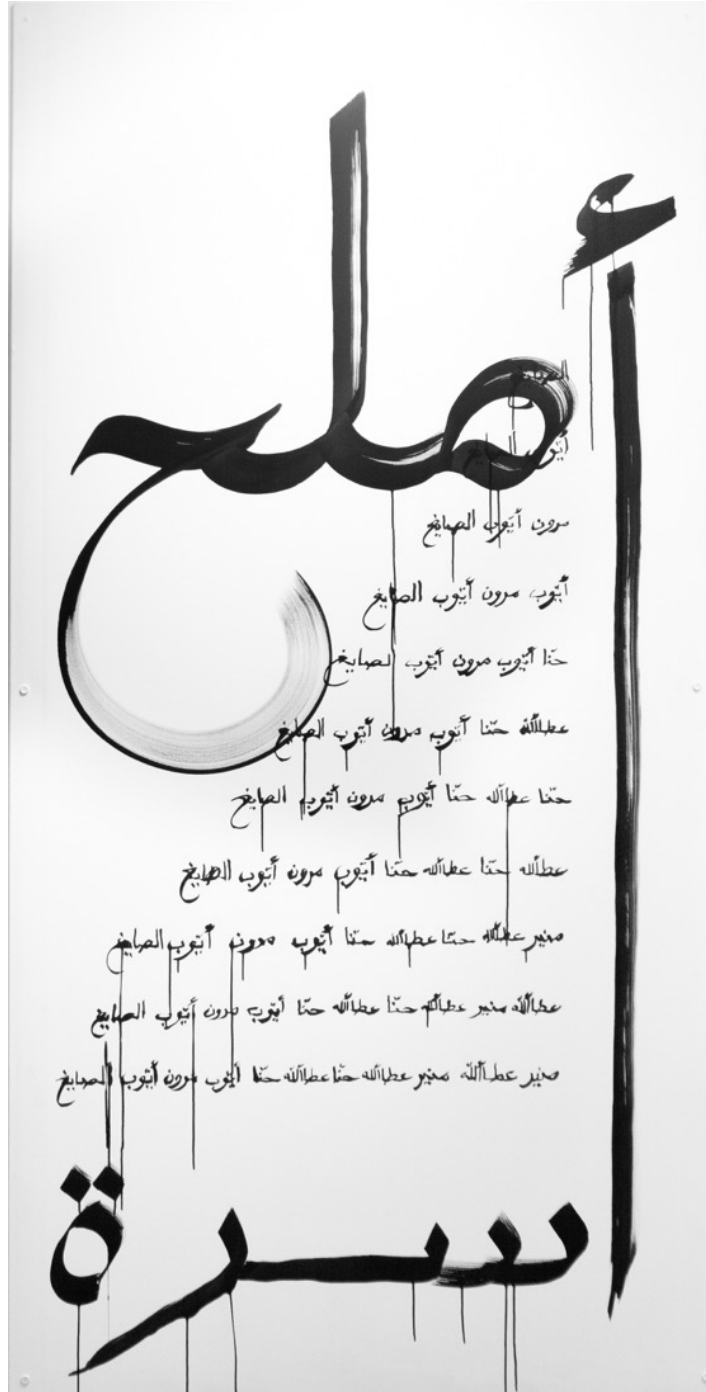 أملح
الصايغ
أيّوب الصايغ
مرون أيّوب الصايغ
أيّوب مرون أيّوب الصايغ
حنّا أيّوب مرون أيّوب الصايغ
عطاالله حنّا أيّوب مرون أيّوب الصايغ
حنّا عطاالله حنّا أيّوب مرون أيّوب الصايغ
عطاالله حنّا عطاالله حنّا أيّوب مرون أيّوب الصايغ
منير عطاالله حنّا عطاالله حنّا أيّوب مرون أيّوب الصايغ
عطاالله منير عطاالله حنّا عطاالله حنّا أيّوب مرون أيّوب الصايغ
منير عطاالله منير عطاالله حنّا عطاالله حنّا أيّوب مرون أيّوب الصايغ
سرة